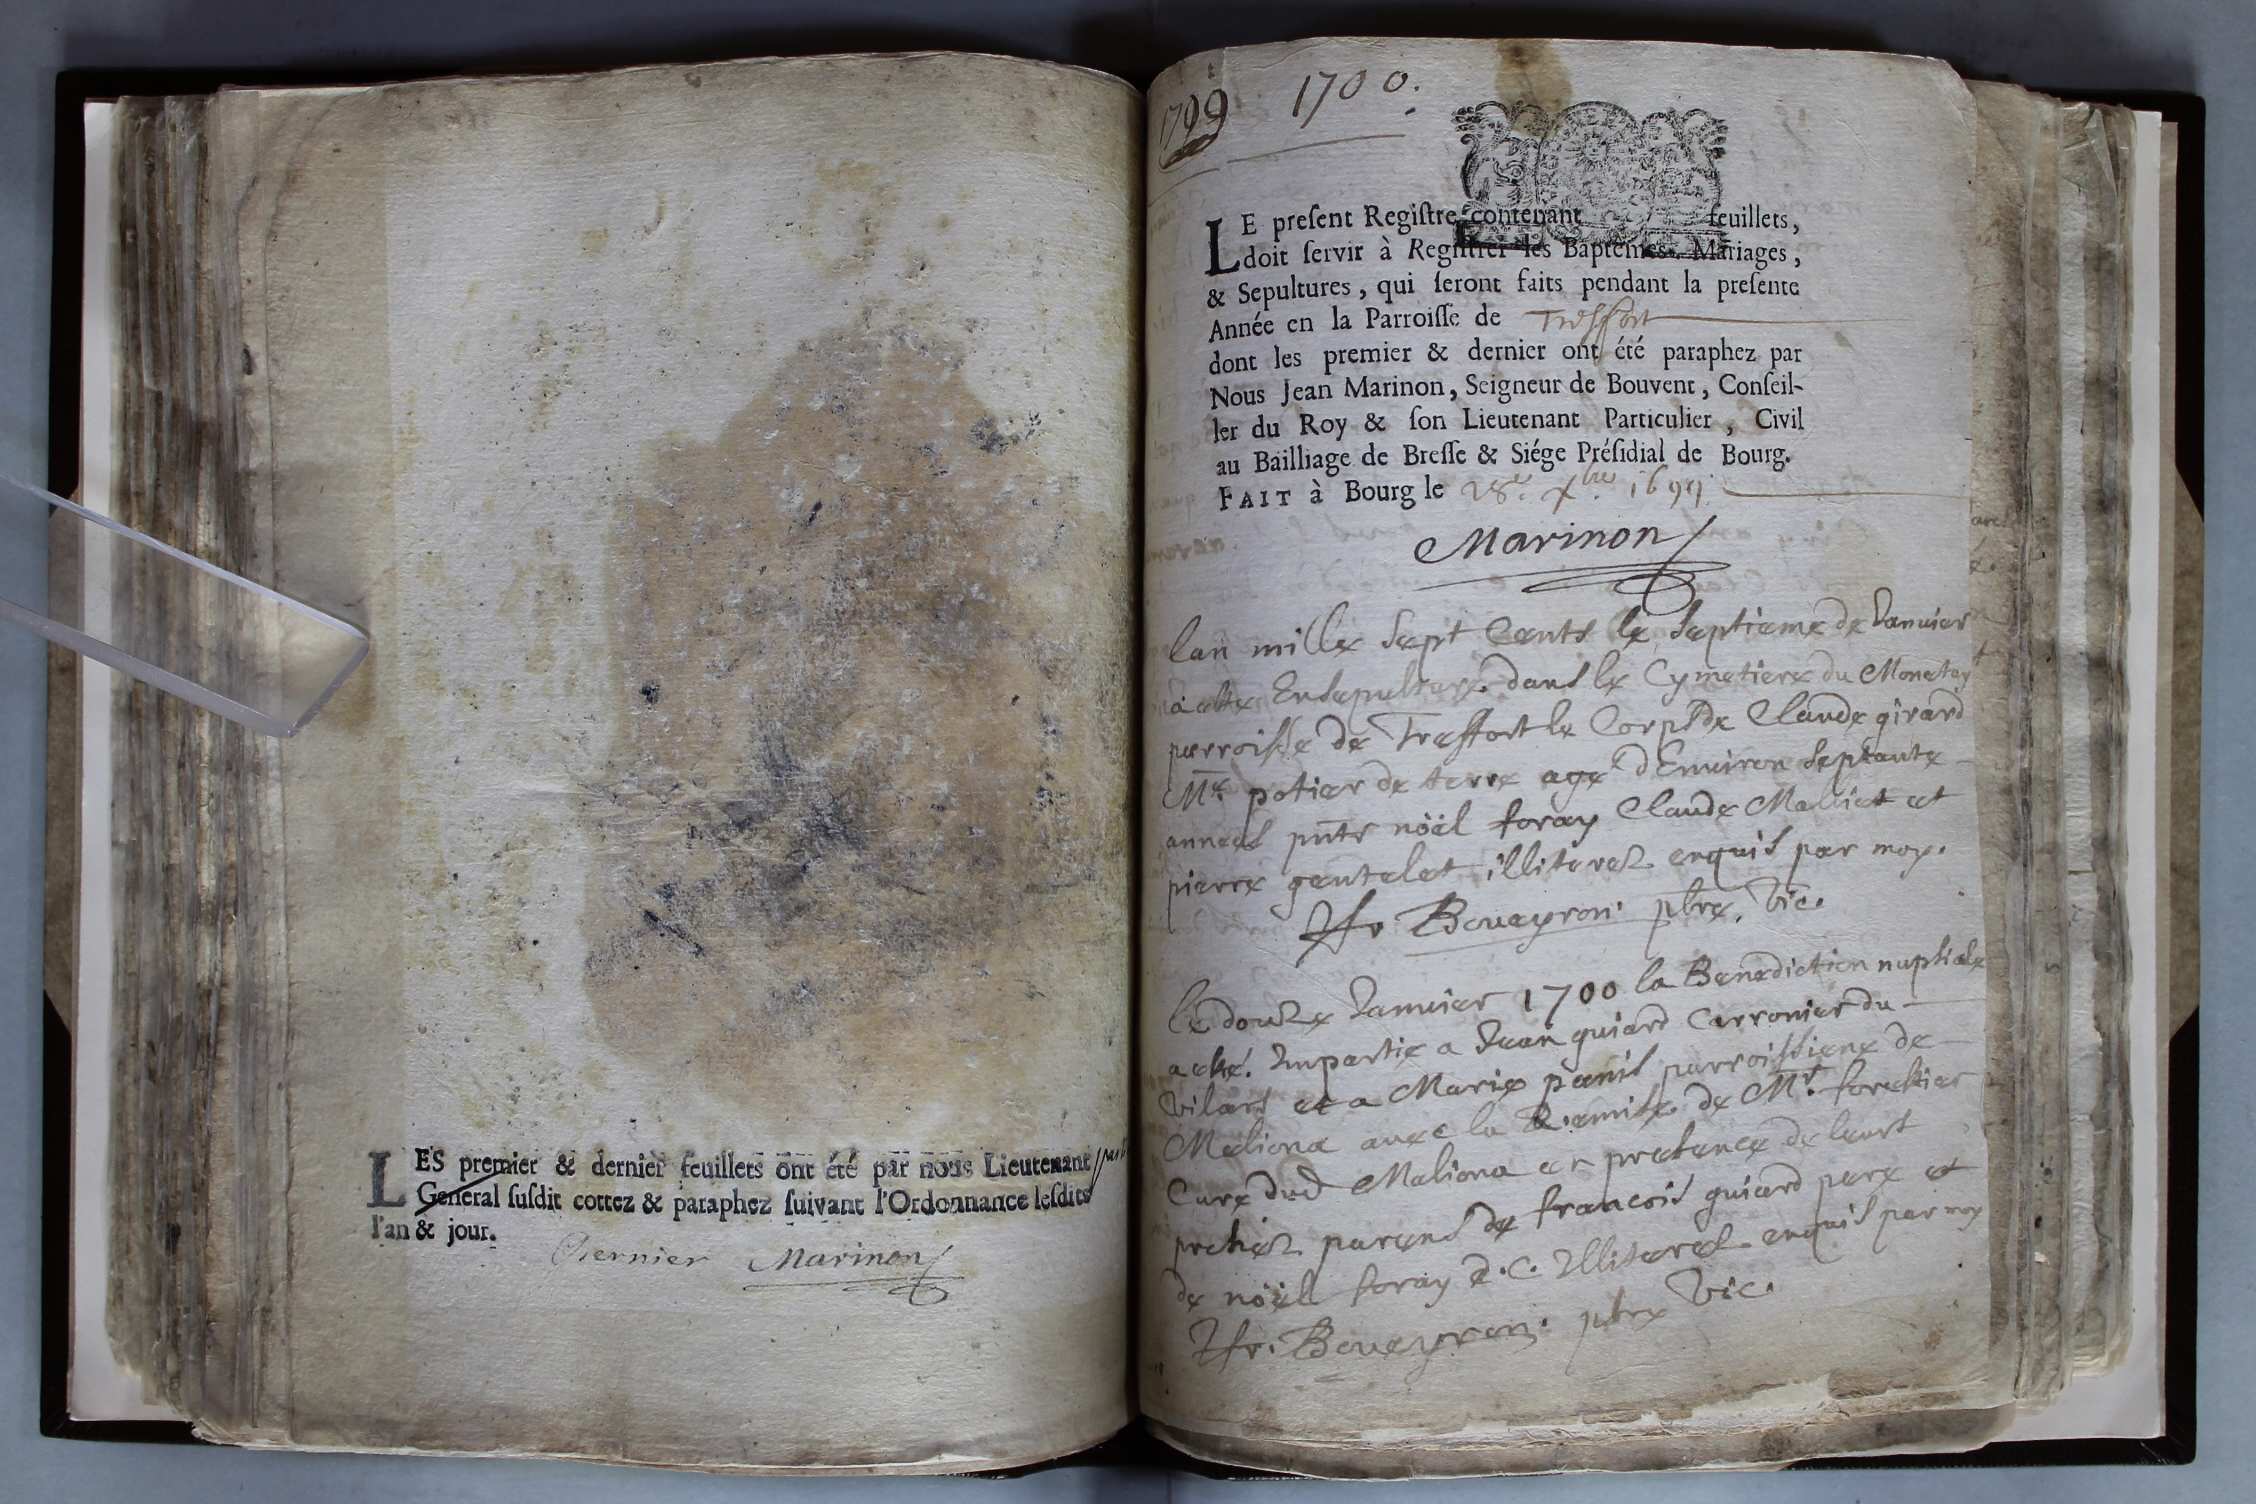 LES premier & dernier feuillets ont été par nous Lieutenant part
General susdit cottez & paraphez suivant l'Ordonnance lesdits
l'an & jour.
Dernier Marinon
1700.
LE present Registre contenant feuillets,
doit servir à Registrer les Baptémes, Mariages,
& Sepultures, qui seront faits pendant la presente
Année en la Parroisse de Tresffort
dont les premier & dernier ont été paraphez par
Nous Jean Marinon, Seigneur de Bouvent, Conseil-
ler du Roy & son Lieutenant Particulier, Civil
au Bailliage de Bresse & Siége Présidial de Bourg.
FAIT à Bourg le 28e. xbre 1699.
Marinon
lan mille Sept Cents le septieme de Janvier
a esté Ensepulturé dans le Cymetiere du Monetay
parroisse de Treffort le Corps de Claude girard
Mre. potier de terre agé d'Environ Septante
annees pnts nöël foray Claude Maliet et
pierre gentelet illiteres enquis par moy.
Boueyron. pbre. vic.
le douze Janvier 1700 la Benediction nuptiale
a esté Impartie a Jean guiard Carronier du
vilars et a Marie panis parroissiene de
Meliona avec la Remise de Mr. forestier
Curé dud Meliona en presence de leurs
proches parens de francois guiard pere et
de nöël foray d. C. Illiteres enquis par moy
Boueyron. pbre vic.